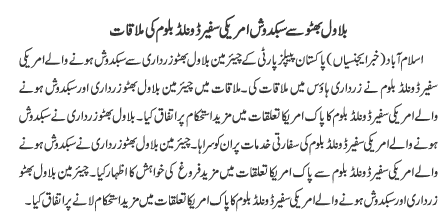 بلاول بھٹو سے سبکدوش امریکی سفیر ڈونلڈ بلوم کی ملاقات
اسلام آباد (خبر ایجنسیاں) پاکستان پیپلز پارٹی کے چیئر مین بلاول بھٹو زرداری سے سبکدوش ہونے والے امریکی
سفیر ڈونلڈ بلوم نے زرداری ہاؤس میں ملاقات کی۔ ملاقات میں چیئر مین بلاول بھٹو زرداری اور سبکدوش ہونے
والے امریکی سفیر ڈونلڈ بلوم کا پاک امریکا تعلقات میں مزید استحکام پر اتفاق کیا۔ بلاول بھٹو زرداری نے سبکدوش
ہونے والے امریکی سفیر ڈونلڈ بلوم کی سفارتی خدمات پر ان کو سراہا۔ چیئر مین بلاول بھٹو زرداری نے سبکدوش ہونے
والے امریکی سفیر ڈونلڈ بلوم سے پاک امریکا تعلقات میں مزید فروغ کی خواہش کا اظہار کیا۔ چیئر مین بلاول بھٹو
زرداری اور سبکدوش ہونے والے امریکی سفیر ڈونلڈ بلوم کا پاک امریکا تعلقات میں مزید استحکام لانے پر اتفاق کیا۔